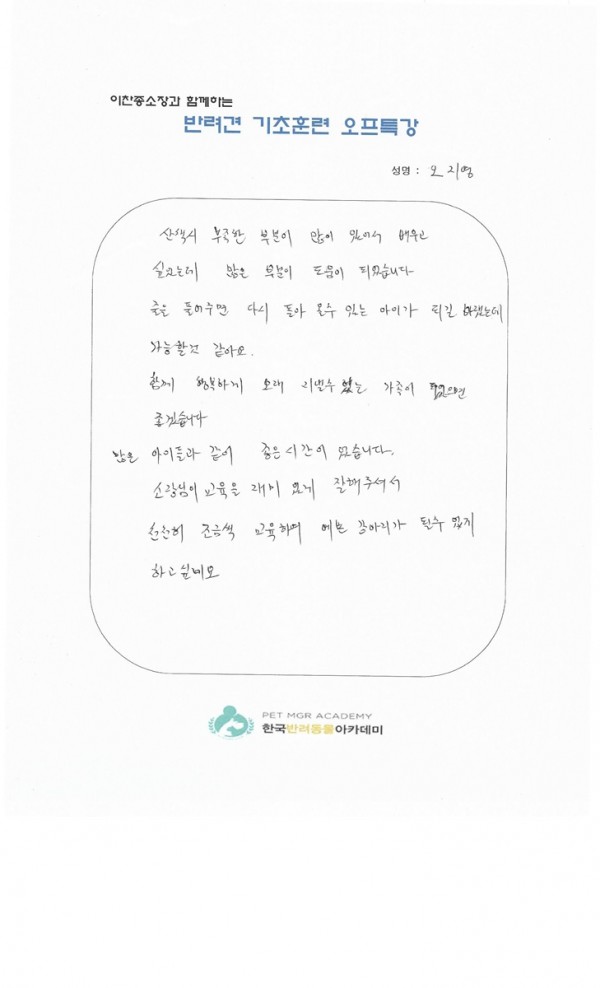 이찬종소장과 함께하는
반려견 기초훈련 오프특강
성명 : 오지영
산책시 부족한 부분이 많이 있어서 배우고
싶었는데 많은 부분이 도움이 되었습니다
줄을 풀어주면 다시 돌아 올수 있는 아이가 되길 바랬는데
가능할것 같아요.
함께 행복하게 오래 지낼수 있는 가족이 되었으면
좋겠습니다
많은 아이들과 같이 좋은시간이 었습니다.
소장님이 교육을 재미 있게 잘해주셔서
천천히 조금씩 교육하며 예쁜 강아지가 될수 있게
하고싶네요
PET MGR ACADEMY
한국반려동물아카데미